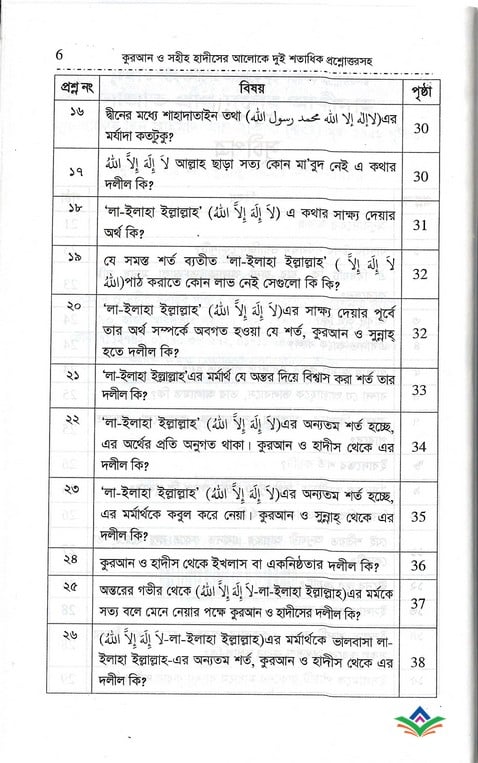 6 কুরআন ও সহীহ হাদীসের আলোকে দুই শতাধিক প্রশ্নোত্তরসহ
প্রশ্ন নং বিষয় পৃষ্ঠা
১৬ দ্বীনের মধ্যে শাহাদাতাইন তথা (لاإله إلا الله محمد رسول الله)এর
মর্যাদা কতটুকু? 30
১৭ لَا إِلَهَ إِلَّا اللهُ আল্লাহ ছাড়া সত্য কোন মা'বুদ নেই এ কথার
দলীল কি? 30
১৮ 'লা-ইলাহা ইল্লাল্লাহ' (لَا إِلَهَ إِلَّا اللهُ) এ কথার সাক্ষ্য দেয়ার
অর্থ কি? 31
১৯ যে সমস্ত শর্ত ব্যতীত 'লা-ইলাহা ইল্লাল্লাহ' (لَا إِلَهَ إِلَّا
اللهُ)পাঠ করাতে কোন লাভ নেই সেগুলো কি কি? 32
২০ 'লা-ইলাহা ইল্লাল্লাহ' (لَا إِلَهَ إِلَّا اللهُ)এর সাক্ষ্য দেয়ার পূর্বে
তার অর্থ সম্পর্কে অবগত হওয়া যে শর্ত, কুরআন ও সুন্নাহ্
হতে দলীল কি? 32
২১ 'লা-ইলাহা ইল্লাল্লাহ'এর মর্মার্থ যে অন্তর দিয়ে বিশ্বাস করা শর্ত তার
দলীল কি? 33
২২ 'লা-ইলাহা ইল্লাল্লাহ' (لَا إِلَهَ إِلَّا اللهُ)এর অন্যতম শর্ত হচ্ছে,
এর অর্থের প্রতি অনুগত থাকা। কুরআন ও হাদীস থেকে এর
দলীল কি? 34
২৩ 'লা-ইলাহা ইল্লাল্লাহ' (لَا إِلَهَ إِلَّا اللهُ)এর অন্যতম শর্ত হচ্ছে,
এর মর্মার্থকে কবুল করে নেয়া। কুরআন ও সুন্নাহ্ থেকে এর
দলীল কি? 35
২৪ কুরআন ও হাদীস থেকে ইখলাস বা একনিষ্ঠতার দলীল কি? 36
২৫ অন্তরের গভীর থেকে (لَا إِلَهَ إِلَّا اللهُ-লা-ইলাহা ইল্লাল্লাহ)এর মর্মকে
সত্য বলে মেনে নেয়ার পক্ষে কুরআন ও হাদীসের দলীল কি? 37
২৬ (لَا إِلَهَ إِلَّا اللهُ-লা-ইলাহা ইল্লাল্লাহ)এর মর্মার্থকে ভালবাসা লা-
ইলাহা ইল্লাল্লাহ-এর অন্যতম শর্ত, কুরআন ও হাদীস থেকে এর
দলীল কি? 38